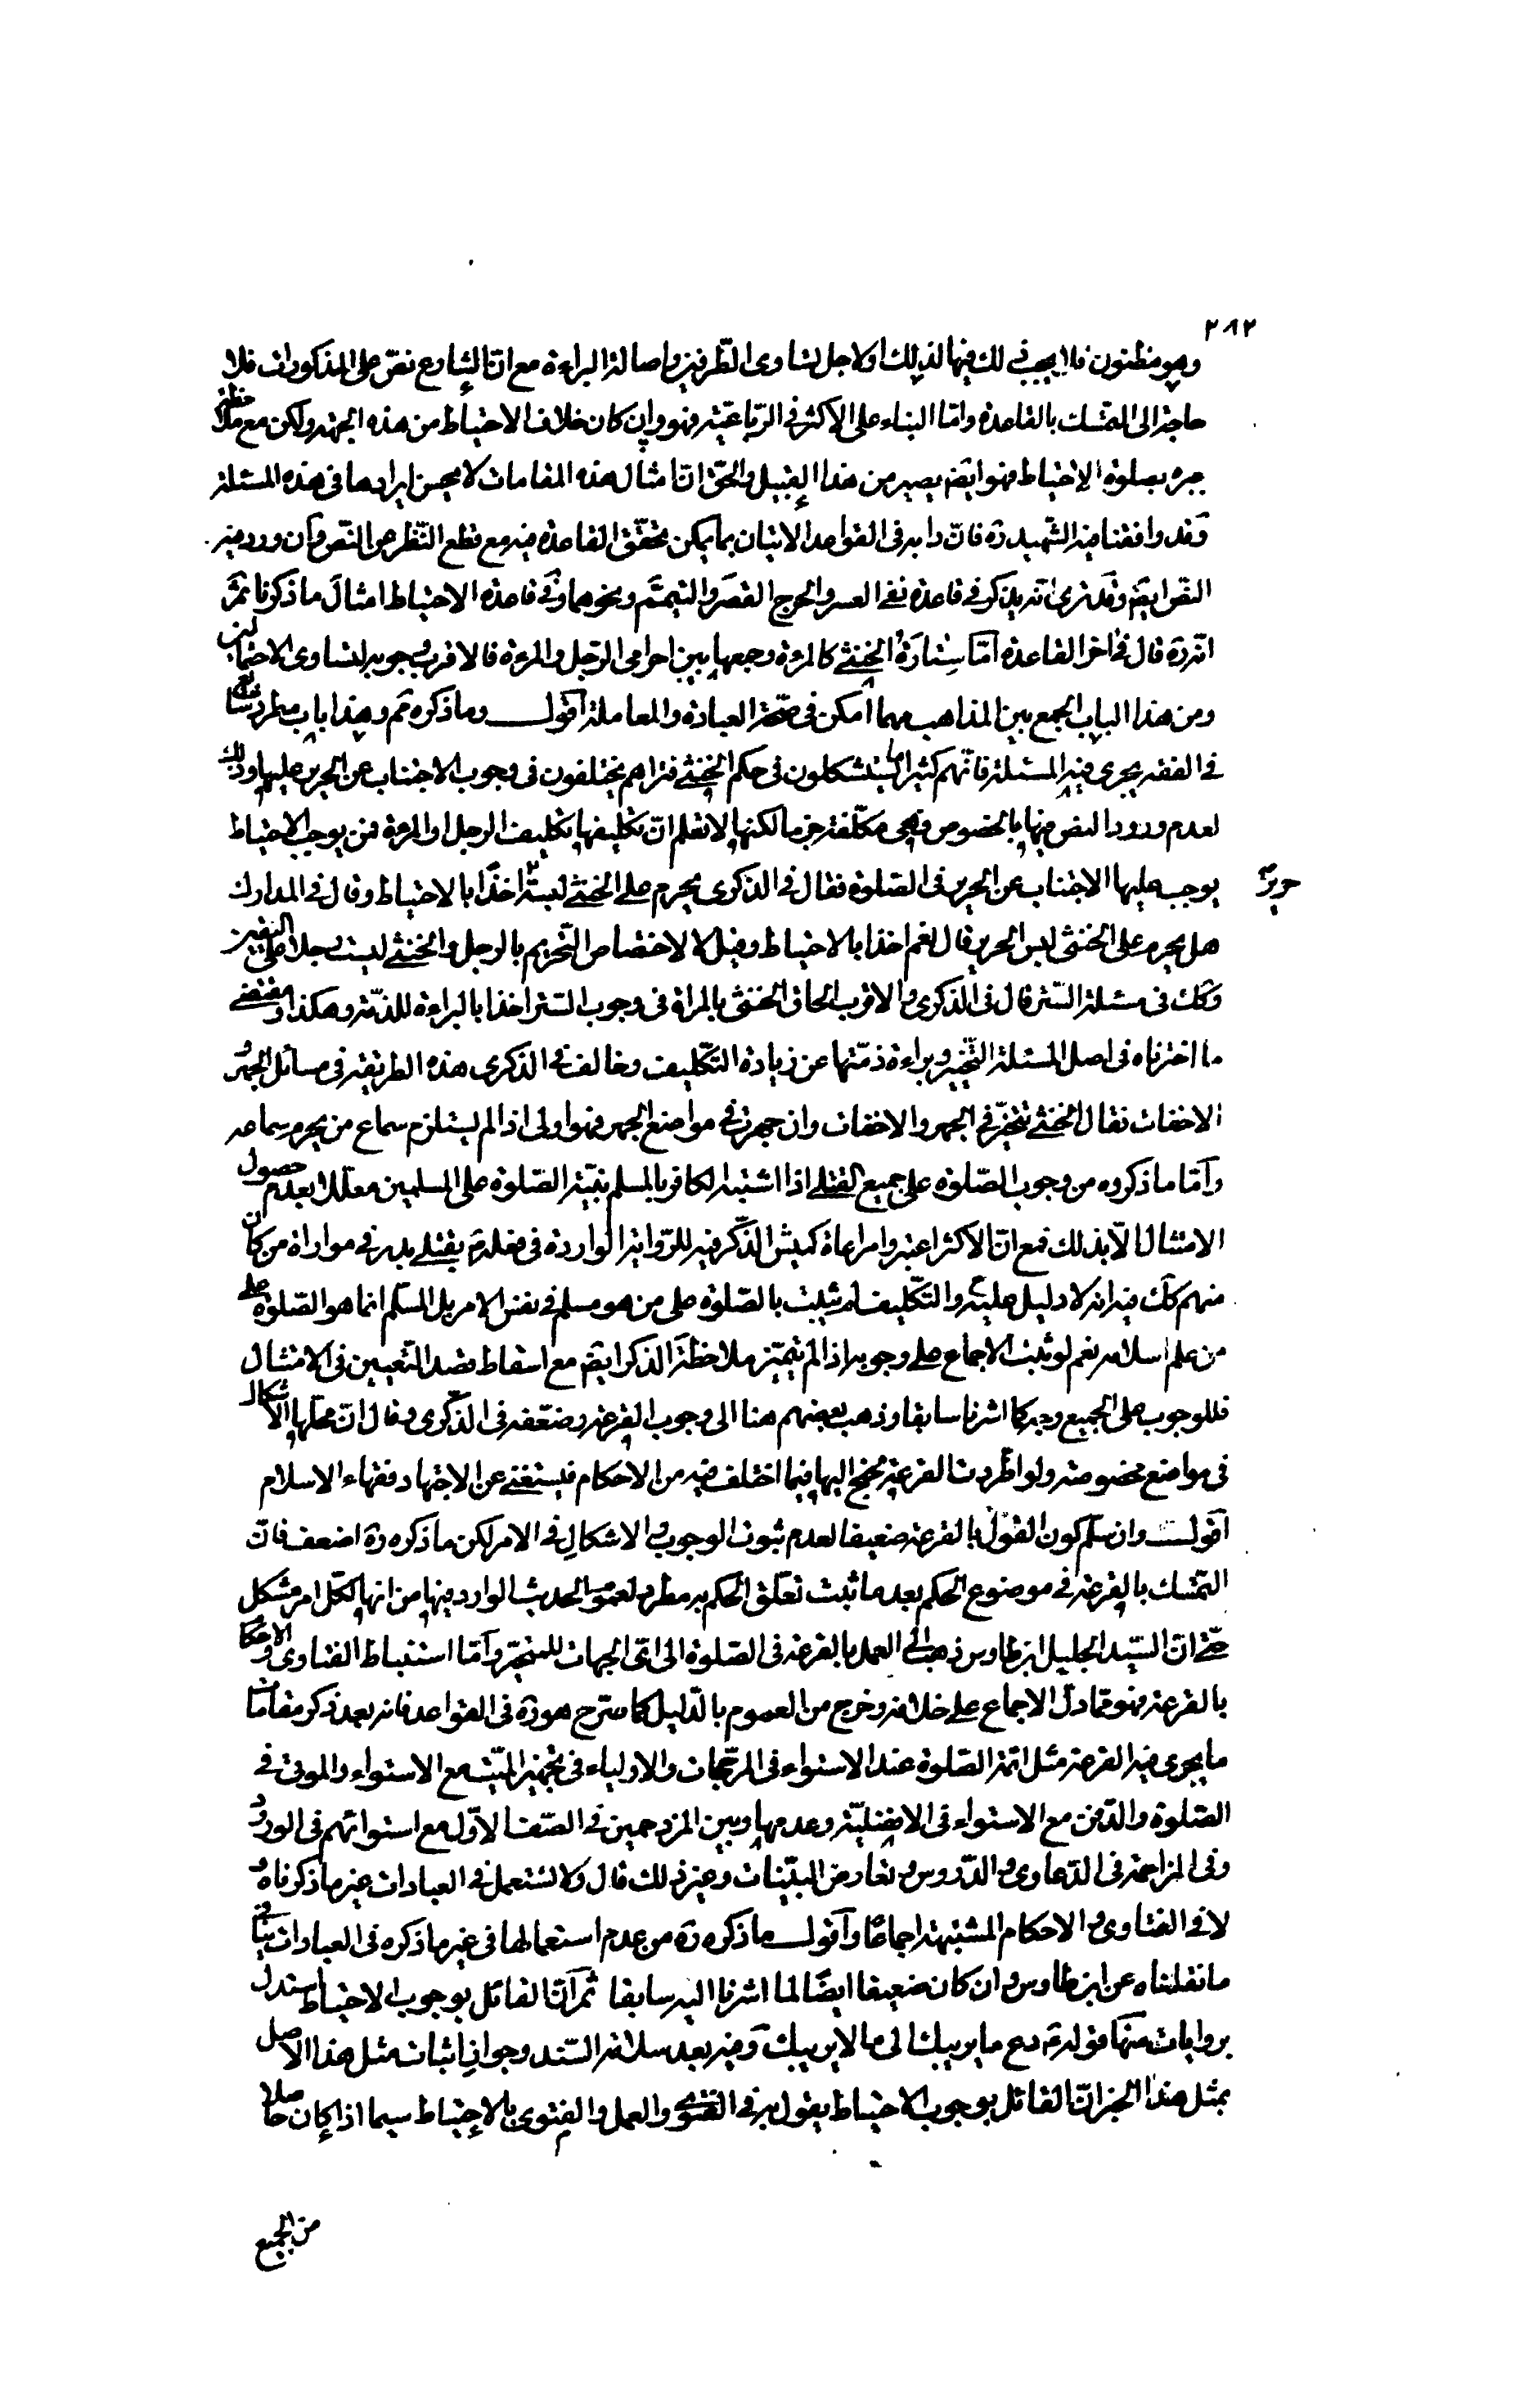 ٢٨٢
وهو مظنون فلا يجب في لك فيها لذلك او لاجل تساوى الطّرفين واصالة البراءة مع انّ الشّارع نصّ على المذكورات فلا
حاجة الى التمّسك بالقاعدة وامّا البناء على الاكثر فى الرّباعيّة فهو وان كان خلاف الاحتياط من هذه الجهة ولكن مع ملاحظة
جبره بصلوة الاحتياط فهو ايضً يصير من هذا القبيل والحقّ انّ امثال هذه المقامات لا يحسن ايرادها فى هذه المسئلة
وقد وافقنا فيه الشّهيد ره فانّ دابه فى القواعد الاتيان بما يمكن تحقّق القاعدة فيه مع قطع النّظر عن النّص وان ورد فيه
النّص ايضً وقد نرى انّه يذكر فى قاعدة نفى العسر والحرج القصر والتيمّم ونحوهما وفى قاعدة الاحتياط امثال ما ذكرنا ثمّ
انّه ره قال فى اخر القاعدة امّا ستارة الخنثى كالمرءة وجمعها بين احرامى الرّجل والمرءة فالاقرب وجوبه لتساوى الاحتمالين
ومن هذا الباب الجمع بين المذاهب مهما امكن فى صحّة العبادة والمعاملة اقول وما ذكره ثم وهذا باب مطرد شايع
فى الفقه يجرى فيه المسئلة فانّهم كثيرا ما يستشكلون فى حكم الخنثى فتراهم يختلفون فى وجوب الاجتناب عن الحرير عليها وذلك
لعدم ورود النص فيها بالخصوص وهى مكلّفة جزما لكنها لا تعلم انّ تكليفها تكليف الرجل او المرءة فمن يوجب الاحتياط
يوجب عليها الاجتناب عن الحرير فى الصّلوة فقال فى الذكرى يحرم على الخنثى لبسه اخذًا بالاحتياط وقال فى المدارك
حرير
هل يحرم على الخنثى لبس الحرير قال نعم اخذا بالاحتياط وقيل لا لاختصاص التّحريم بالرجل والخنثى ليست رجلا على اليقين
وكك فى مسئلة السّتر قال فى الذكرى والاقرب الحاق الخنثى بالمراة فى وجوب السّتر اخذا بالبراءة للذمّة وهكذا ومقتضى
ما اخترناه فى اصل المسئلة التّخيير وبراءة ذمّتها عن زيادة التّكليف وخالف فى الذكرى هذه الطريقة فى مسائل الجهر و
الاخفات فقال الخنثى تتخيّر فى الجهر والاخفات وان جهرت فى مواضع الجهر فهو اولى اذا لم يستلزم سماع من يحرم سماعه
وامّا ما ذكروه من وجوب الصّلوة على جميع القتلى اذا اشتبه الكافر بالمسلم بنيّة الصّلوة على المسلمين معلّلا بعدم حصول
الامتثال الّا بذلك فمع انّ الاكثر اعتبروا مراعاة كميش الذّكر فيه للرّواية الواردة فى فعله ص بقتلى بدر فى مواراة من كان
منهم كك فيه انه لا دليل عليه والتّكليف لم يثبت بالصّلوة على من هو مسلم فى نفس الامر بل المسلّم انما هو الصّلوة على
من علم اسلامه نعم لو ثبت الاجماع على وجوبه اذا لم يتميّز بملاحظة الذكر ايضً مع اسقاط قصد التّعيين فى الامتثال
فللوجوب على الجميع وجه كما اشرنا سابقا وذهب بعضهم هنا الى وجوب القرعة وضعّفه فى الذّكرى وقال انّ محلّها الاشكال
فى مواضع مخصوصة ولو اطّردت القرعة يحتج اليها فيما اختلف فيه من الاحكام فيستغنى عن الاجتهاد فقهاء الاسلام
اقول وان سلّم كون القول بالقرعة ضعيفا لعدم ثبوت الوجوب والاشكال فى الامر لكن ما ذكره ره اضعف فانّ
التّمسّك بالقرعة فى موضوع الحكم بعد ما ثبت تعلّق الحكم به مطرد لعموم الحديث الوارد فيها من انها لكلّ امر مشكل
حتّى انّ السّيّد الجليل ابن طاوس ذهب الى العمل بالقرعة فى الصّلوة الى اىّ الجهات للمتحيّر وامّا استنباط الفتاوى والاحكام
بالقرعة فهو ممّا دلّ الاجماع على خلافه وخرج من العموم بالدّليل كما صرّح هو ره فى القواعد فانه بعد ذكر مقامات
ما يجرى فيه القرعة مثل ائمّة الصّلوة عند الاستواء فى المرجّحات والاولياء فى تجهيز الميّت مع الاستواء والموتى فى
الصّلوة والدّفن مع الاستواء فى الافضليّة وعدمها وبين المزدحمين فى الصّف الاوّل مع استوائهم فى الورود
وفى المزاحمة فى الدّعاوى والدّروس وتعارض البيّنات وغير ذلك قال ولا تستعمل فى العبادات غير ما ذكرناه و
لا فى الفتاوى والاحكام المشتبهة اجماعًا واقول ما ذكره ره من عدم استعمالها فى غير ما ذكره فى العبادات ينافى
ما نقلناه عن ابن طاوس وان كان ضعيفا ايضًا لما اشرنا اليه سابقا ثمّ انّ القائل بوجوب الاحتياط يستدل
بروايات منها قوله ع دع ما يريبك الى ما لا يريبك وفيه بعد سلامة السّند وجواز اثبات مثل هذا الاصل
بمثل هذا الخبر انّ القائل بوجوب الاحتياط يقول به فى الفتوى والعمل والفتوى بالاحتياط سيما اذا كان حاصلا
من الجميع